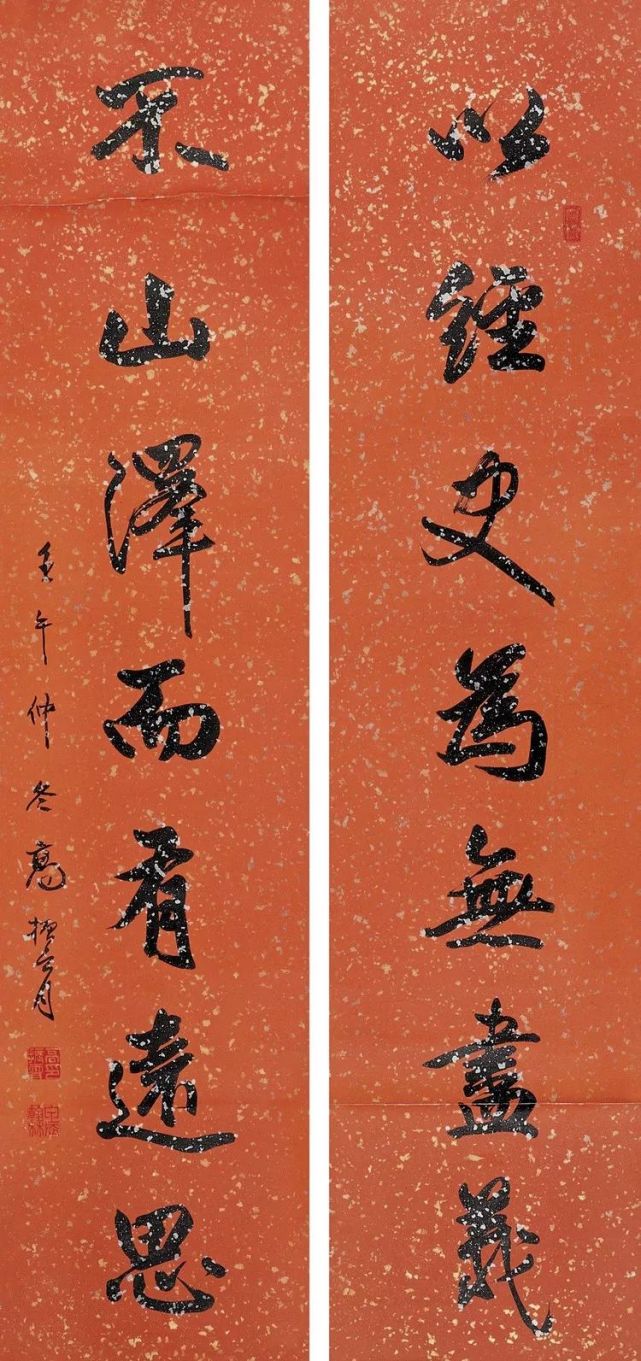 以經史為無盡藏
不山澤而有遠思
壬午仲冬高振霄